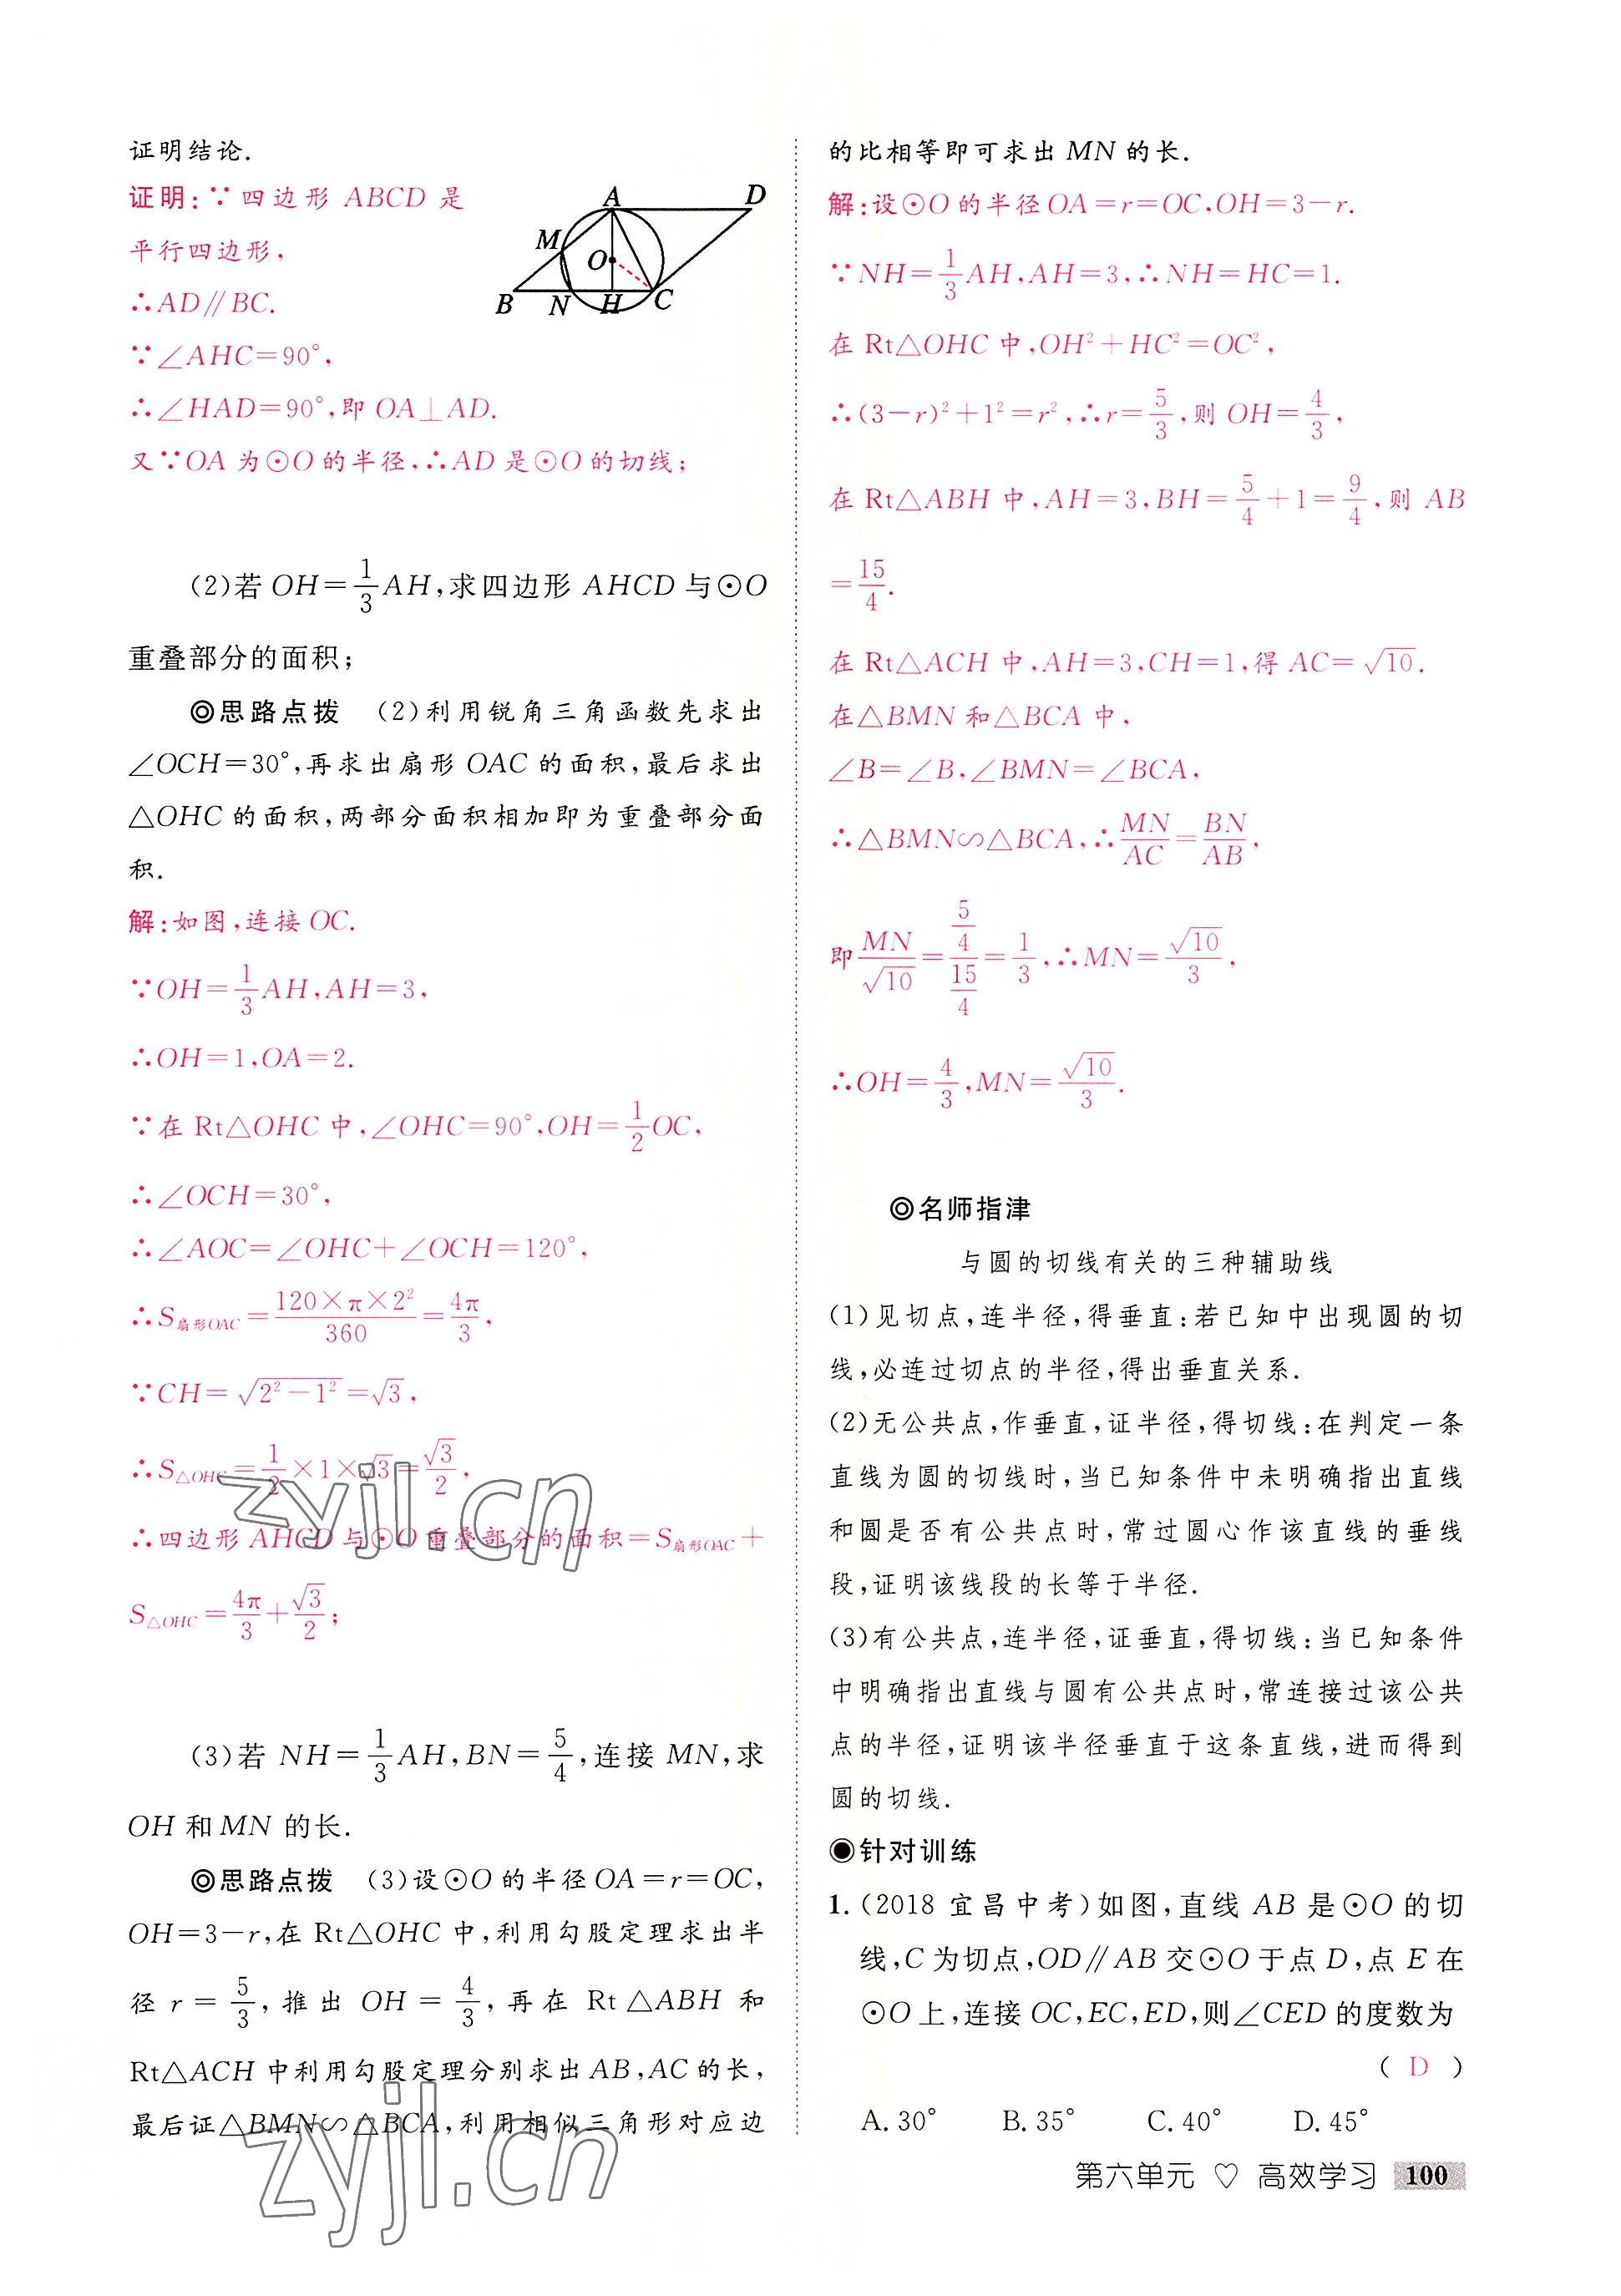 证明结论.
证明:∵四边形 ABCD 是
平行四边形,
∴AD∥BC.
∵∠AHC=90°,
∴∠HAD=90°,即 OA⊥AD.
又∵OA 为⊙O 的半径,∴AD 是⊙O 的切线;
A D M O B N H C
(2)若 OH=1/3 AH,求四边形 AHCD 与⊙O
重叠部分的面积;
◎思路点拨 (2)利用锐角三角函数先求出
∠OCH=30°,再求出扇形 OAC 的面积,最后求出
△OHC 的面积,两部分面积相加即为重叠部分面
积.
解:如图,连接 OC.
∵OH=1/3 AH,AH=3,
∴OH=1,OA=2.
∵在 Rt△OHC 中,∠OHC=90°,OH=1/2 OC,
∴∠OCH=30°,
∴∠AOC=∠OHC+∠OCH=120°,
∴S扇形OAC=120×π×2²/360=4π/3,
∵CH=√(2²-1²)=√3,
∴S△OHC=1/2×1×√3=√3/2,
∴四边形 AHCD 与⊙O 重叠部分的面积=S扇形OAC+
S△OHC=4π/3+√3/2;
(3)若 NH=1/3 AH,BN=5/4,连接 MN,求
OH 和 MN 的长.
◎思路点拨 (3)设⊙O 的半径 OA=r=OC,
OH=3-r,在 Rt△OHC 中,利用勾股定理求出半
径 r=5/3,推出 OH=4/3,再在 Rt△ABH 和
Rt△ACH 中利用勾股定理分别求出 AB,AC 的长,
最后证△BMN∽△BCA,利用相似三角形对应边
的比相等即可求出 MN 的长.
解:设⊙O 的半径 OA=r=OC,OH=3-r.
∵NH=1/3 AH,AH=3,∴NH=HC=1.
在 Rt△OHC 中,OH²+HC²=OC²,
∴(3-r)²+1²=r²,∴r=5/3,则 OH=4/3,
在 Rt△ABH 中,AH=3,BH=5/4+1=9/4,则 AB
=15/4.
在 Rt△ACH 中,AH=3,CH=1,得 AC=√10.
在△BMN 和△BCA 中,
∠B=∠B,∠BMN=∠BCA,
∴△BMN∽△BCA,∴MN/AC=BN/AB,
即 MN/√10=(5/4)/(15/4)=1/3,∴MN=√10/3,
∴OH=4/3,MN=√10/3.
◎名师指津
与圆的切线有关的三种辅助线
(1)见切点,连半径,得垂直:若已知中出现圆的切
线,必连过切点的半径,得出垂直关系.
(2)无公共点,作垂直,证半径,得切线:在判定一条
直线为圆的切线时,当已知条件中未明确指出直线
和圆是否有公共点时,常过圆心作该直线的垂线
段,证明该线段的长等于半径.
(3)有公共点,连半径,证垂直,得切线:当已知条件
中明确指出直线与圆有公共点时,常连接过该公共
点的半径,证明该半径垂直于这条直线,进而得到
圆的切线.
◉针对训练
1.(2018 宜昌中考)如图,直线 AB 是⊙O 的切
线,C 为切点,OD∥AB 交⊙O 于点 D,点 E 在
⊙O 上,连接 OC,EC,ED,则∠CED 的度数为
( D )
A.30° B.35° C.40° D.45°
第六单元 ♡ 高效学习 100
zyjl.cn
zyjl.cn